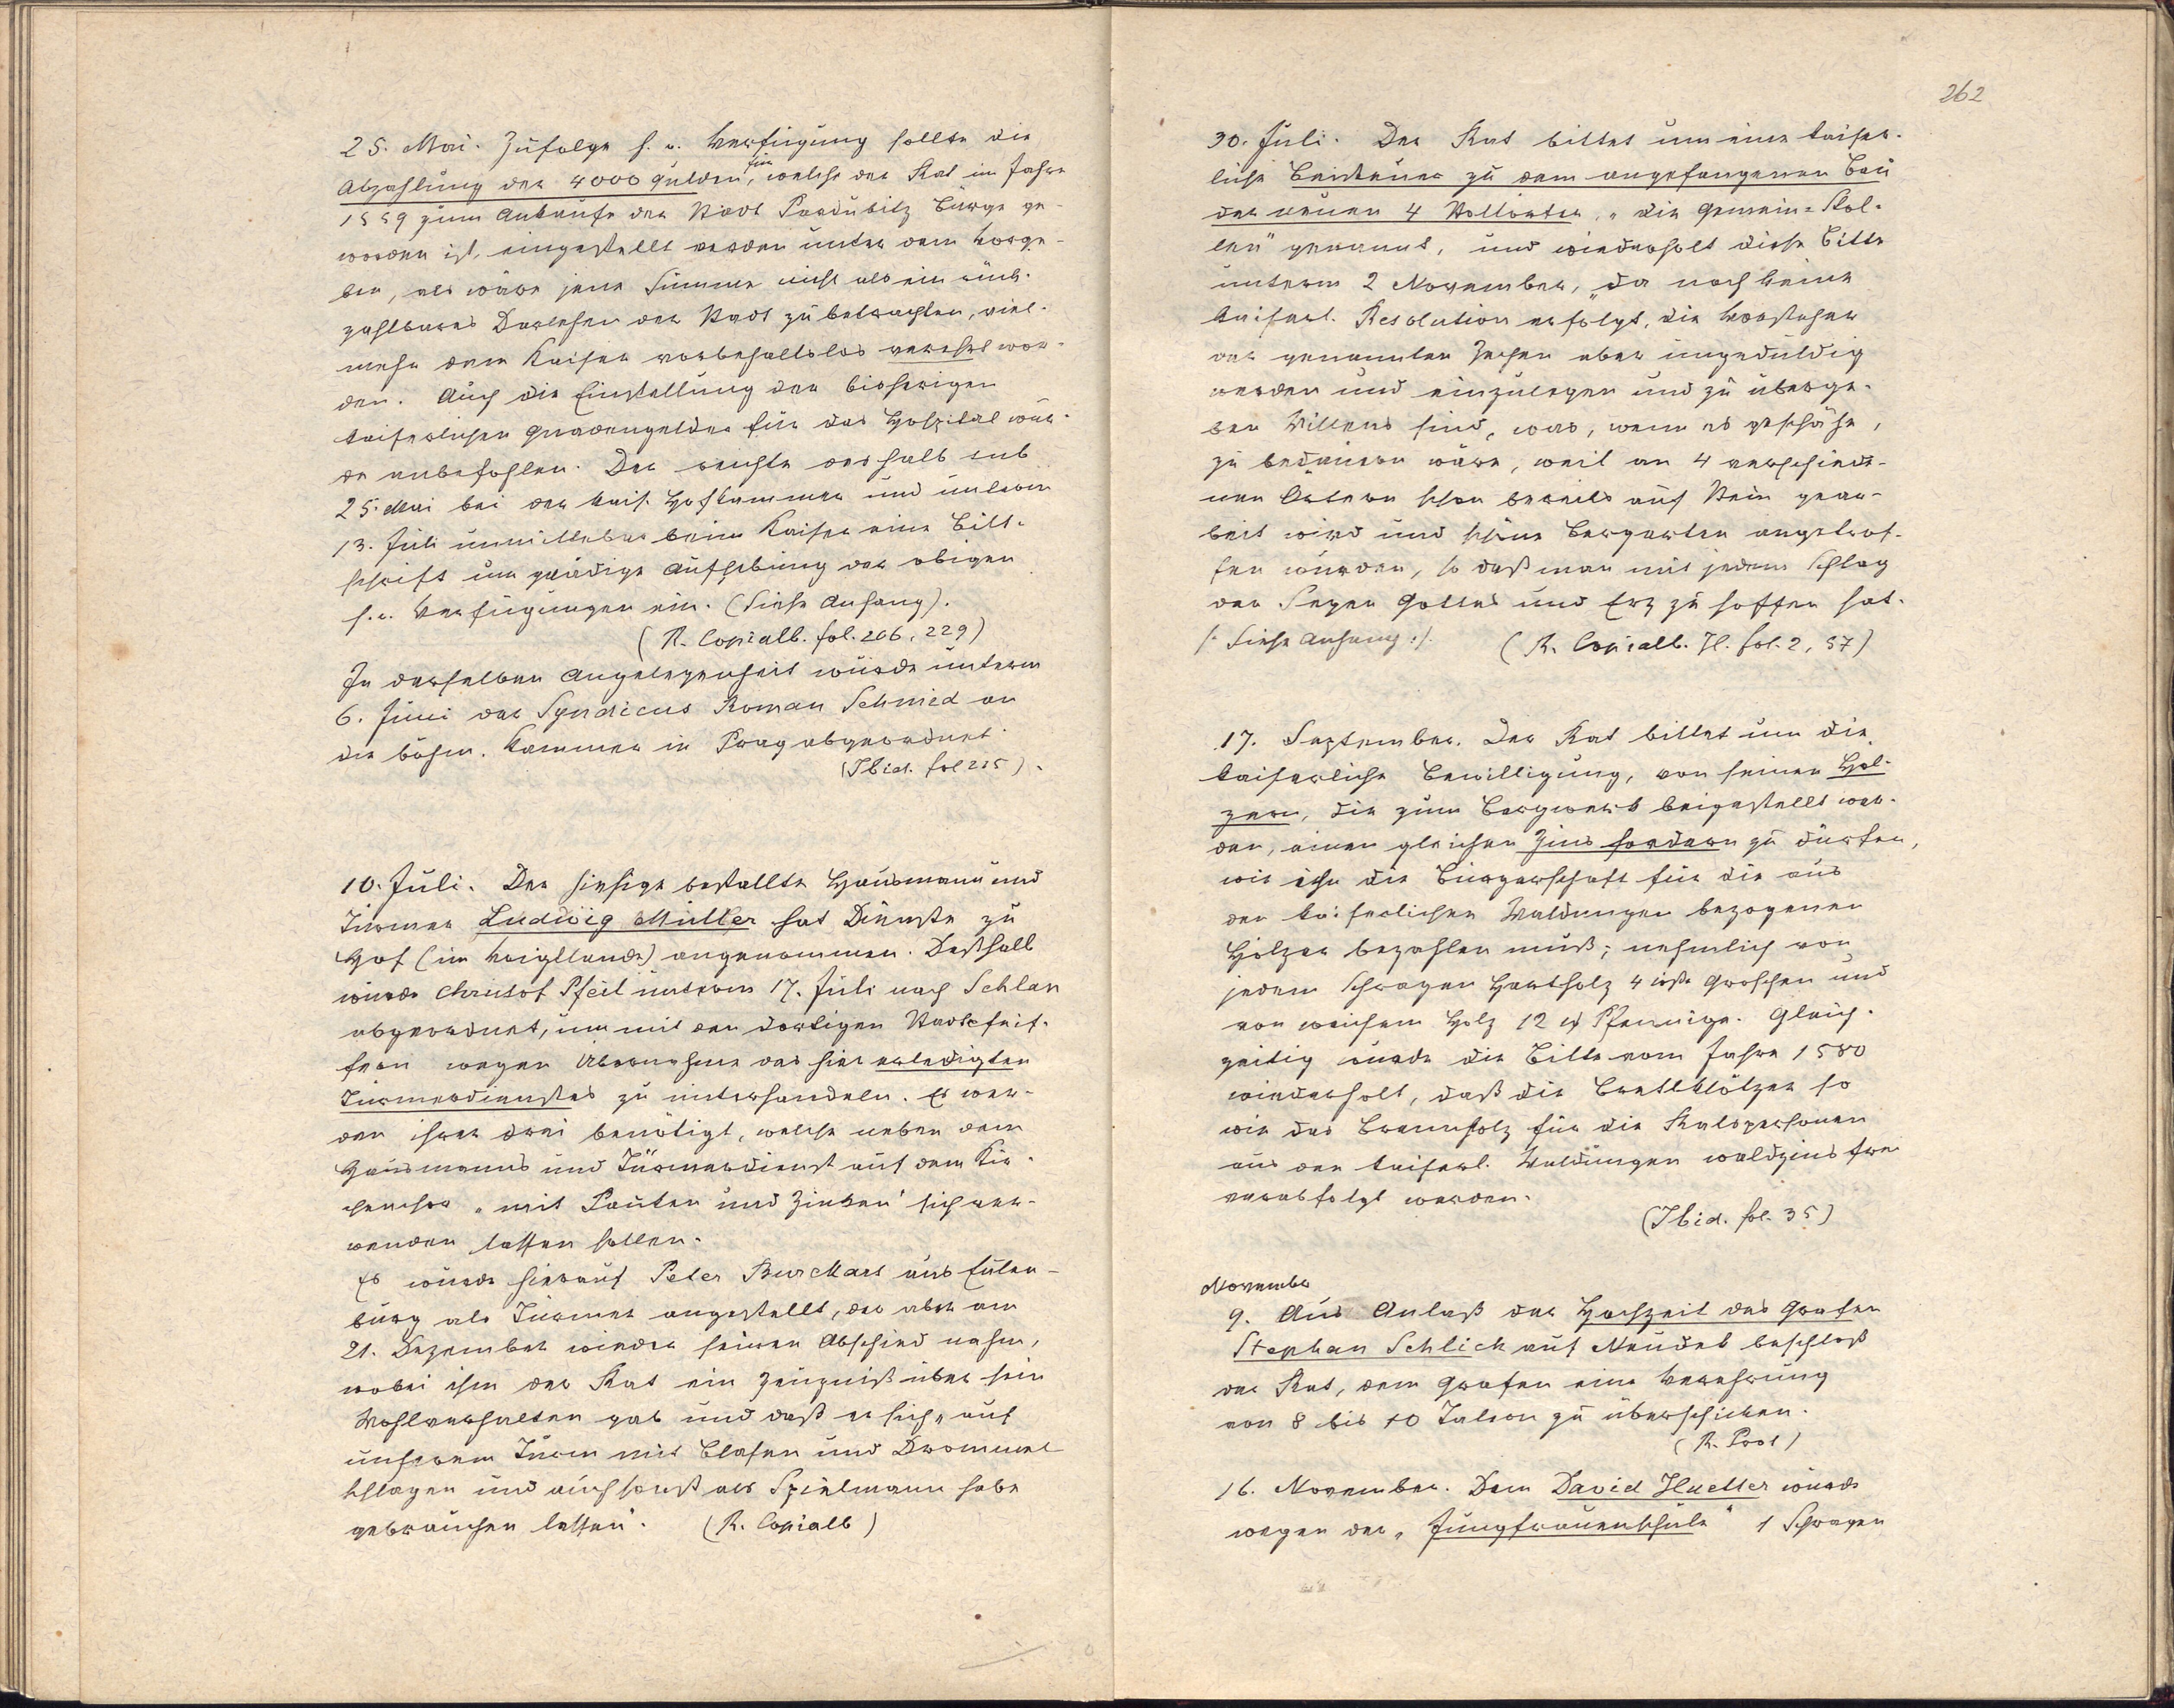 25. Mai. Zufolge h. o. Verfügung sollte die
Abzahlung der 4000 Gulden, für welche der Rat im Jahre
1559 zum Ankaufe der Stadt Pardubitz Bürge ge-
worden ist, eingestellt werden unter dem Vorge-
ben, als wäre jene Summe nicht als ein rück-
zahlbares Darlehen der Stadt zu betrachten, viel-
mehr dem Kaiser vorbehaltslos verehrt wor-
den. Auch die Einstellung der bisherigen
kaiserlichen Gnadengelder für das Hospital wur-
de anbefohlen. Der reichte deshalb sub
25. Mai bei der kais. Hofkammer und unterm
13. Juli unmittelbar beim Kaiser eine Bitt-
schrift um gnädige Aufhebung der obigen
h. o. Verfügungen ein. (Siehe Anhang).
(R. Copialb. fol. 206, 229)
In derselben Angelegenheit wurde unterm
6. Juni der Syndicus Roman Schmied an
die böhm. Kammer in Prag abgeordnet.
(Ibid. fol 215).
10. Juli. Der hiesige bestallte Hausmann und
Türmer Ludwig Müller hat Dienste zu
Hof (im Voigtlande) angenommen. Deßhalb
wurde Christof Pfeil unterm 17. Juli nach Schlan
abgeordnet, um mit den dortigen Stadtpfei-
fern wegen Übernahme des hier erledigten
Türmerdienstes zu unterhandeln. Es wer-
den ihrer drei benötigt, welche neben dem
Hausmanns und Türmerdienst auf dem Kir-
chenchor „mit Pauken und Zinken" sich ver-
wenden lassen sollen.
Es wurde hierauf Peter Burckart aus Eulen-
burg als Türmer angestellt, der aber am
21. Dezember wieder seinen Abschied nahm,
wobei ihm der Rat ein Zeugniß über sein
Wohlverhalten gab und daß er sich „auf
unserem Turm mit Blasen und Drommel
schlagen und auch sonst als Spielmann habe
gebrauchen lassen". (R. Copialb)
262
30. Juli. Der Rat bittet um eine kaiser-
liche Beisteuer zu dem angefangenen Bau
der neuen 4 Stollörter, „die Gemein-Stol-
len" genannt, und wiederholt diese Bitte
unterm 2 November, „da noch keine
kaiserl. Resolution erfolgt, die Vorsteher
der genannten Zechen aber ungeduldig
werden und einzulegen und zu überge-
ben Willens sind, was, wenn es geschähe,
zu bedauern wäre, weil an 4 verschiede-
nen Örtern schon bereits auf Stein gear-
beit wird und schöne Bergarten angetrof-
fen wurden, so daß man mit jedem Schlag
den Segen Gottes und Erz zu hoffen hat.
/: Siehe Anhang :/. (R. Copialb. II. fol. 2, 57)
17. September. Der Rat bittet um die
kaiserliche Bewilligung, von seinen Höl-
zern, die zum Bergwerk beigestellt wer-
den, einen gleichen Zins fordern zu dürfen,
wie ihn die Bürgerschaft für die aus
den kaiserlichen Waldungen bezogenen
Hölzer bezahlen muß; nehmlich von
jedem Schragen Hartholz 4 Groschen und
von weichem Holz 12 Pfennige. Gleich-
zeitig wurde die Bitte vom Jahre 1580
wiederholt, daß die Brettklötzer so
wie das Brennholz für die Ratspersonen
aus den kaiserl. Waldungen waldzinsfrei
verabfolgt werden.
(Ibid. fol. 35)
November
9. Aus Anlaß der Hochzeit des Grafen
Stephan Schlick auf Neudek beschloß
der Rat, dem Grafen eine Verehrung
von 8 bis 10 Talern zu überschicken.
(R. Prot)
16. November. Dem David Hueller wurde
wegen der „Jungfrauenschule" 1 Schragen